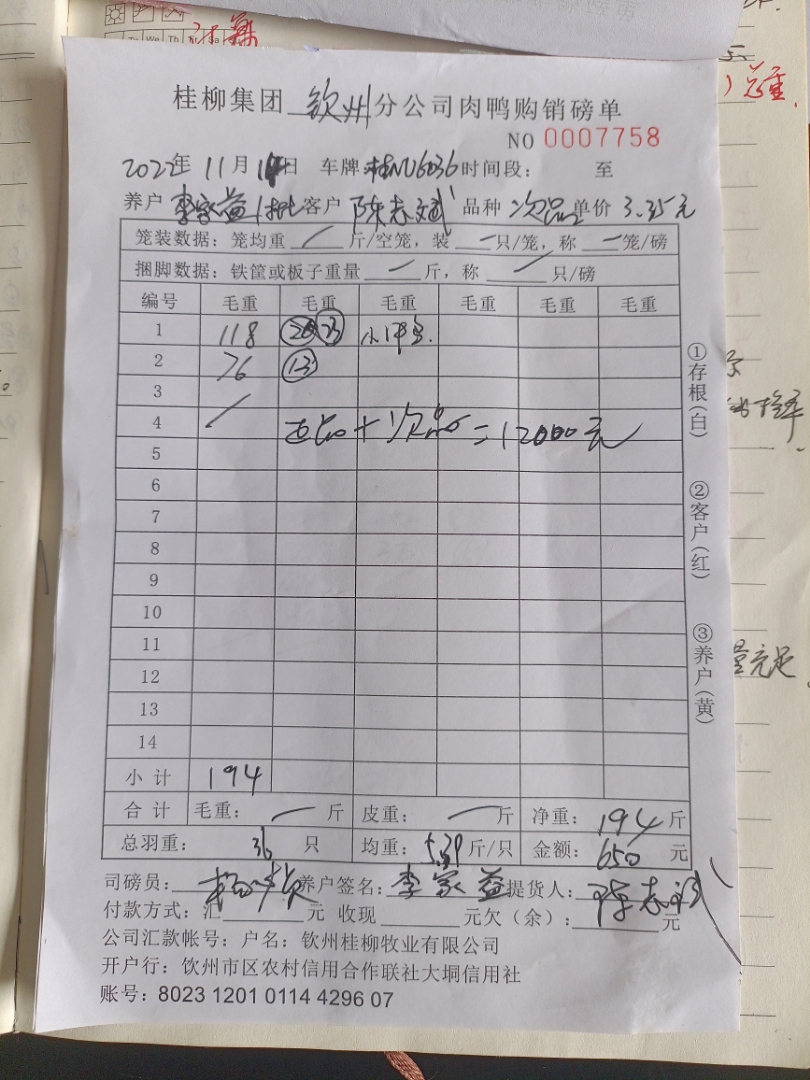 Tu We Th Fr Sa
总重
桂柳集团 钦州 分公司肉鸭购销磅单
NO 0007758
2022年 11月 日 车牌:桂NU6036 时间段: 至
养户 李家益 客户 陈志斌 品种 次品 单价 3.35元
笼装数据: 笼均重 / 斤/空笼, 装 一 只/笼, 称 一 笼/磅
捆脚数据: 铁筐或板子重量 一 斤, 称 一 只/磅
编号 毛重 毛重 毛重 毛重 毛重 毛重
1 118
2 76 13
3
4 / 次品 = 12000元
5
6
7
8
9
10
11
12
13
14
小计 194
合计 毛重: 一 斤 皮重: 一 斤 净重: 194 斤
总羽重: 36 只 均重: 5.39 斤/只 金额: 650 元
司磅员: 养户签名: 李家益 提货人: 陈志斌
付款方式: 汇 元 收现 元欠(余): 元
公司汇款帐号: 户名: 钦州桂柳牧业有限公司
开户行: 钦州市区农村信用合作联社大垌信用社
账号: 8023 1201 0114 4296 07
①存根(白)
②客户(红)
③养户(黄)
量充足